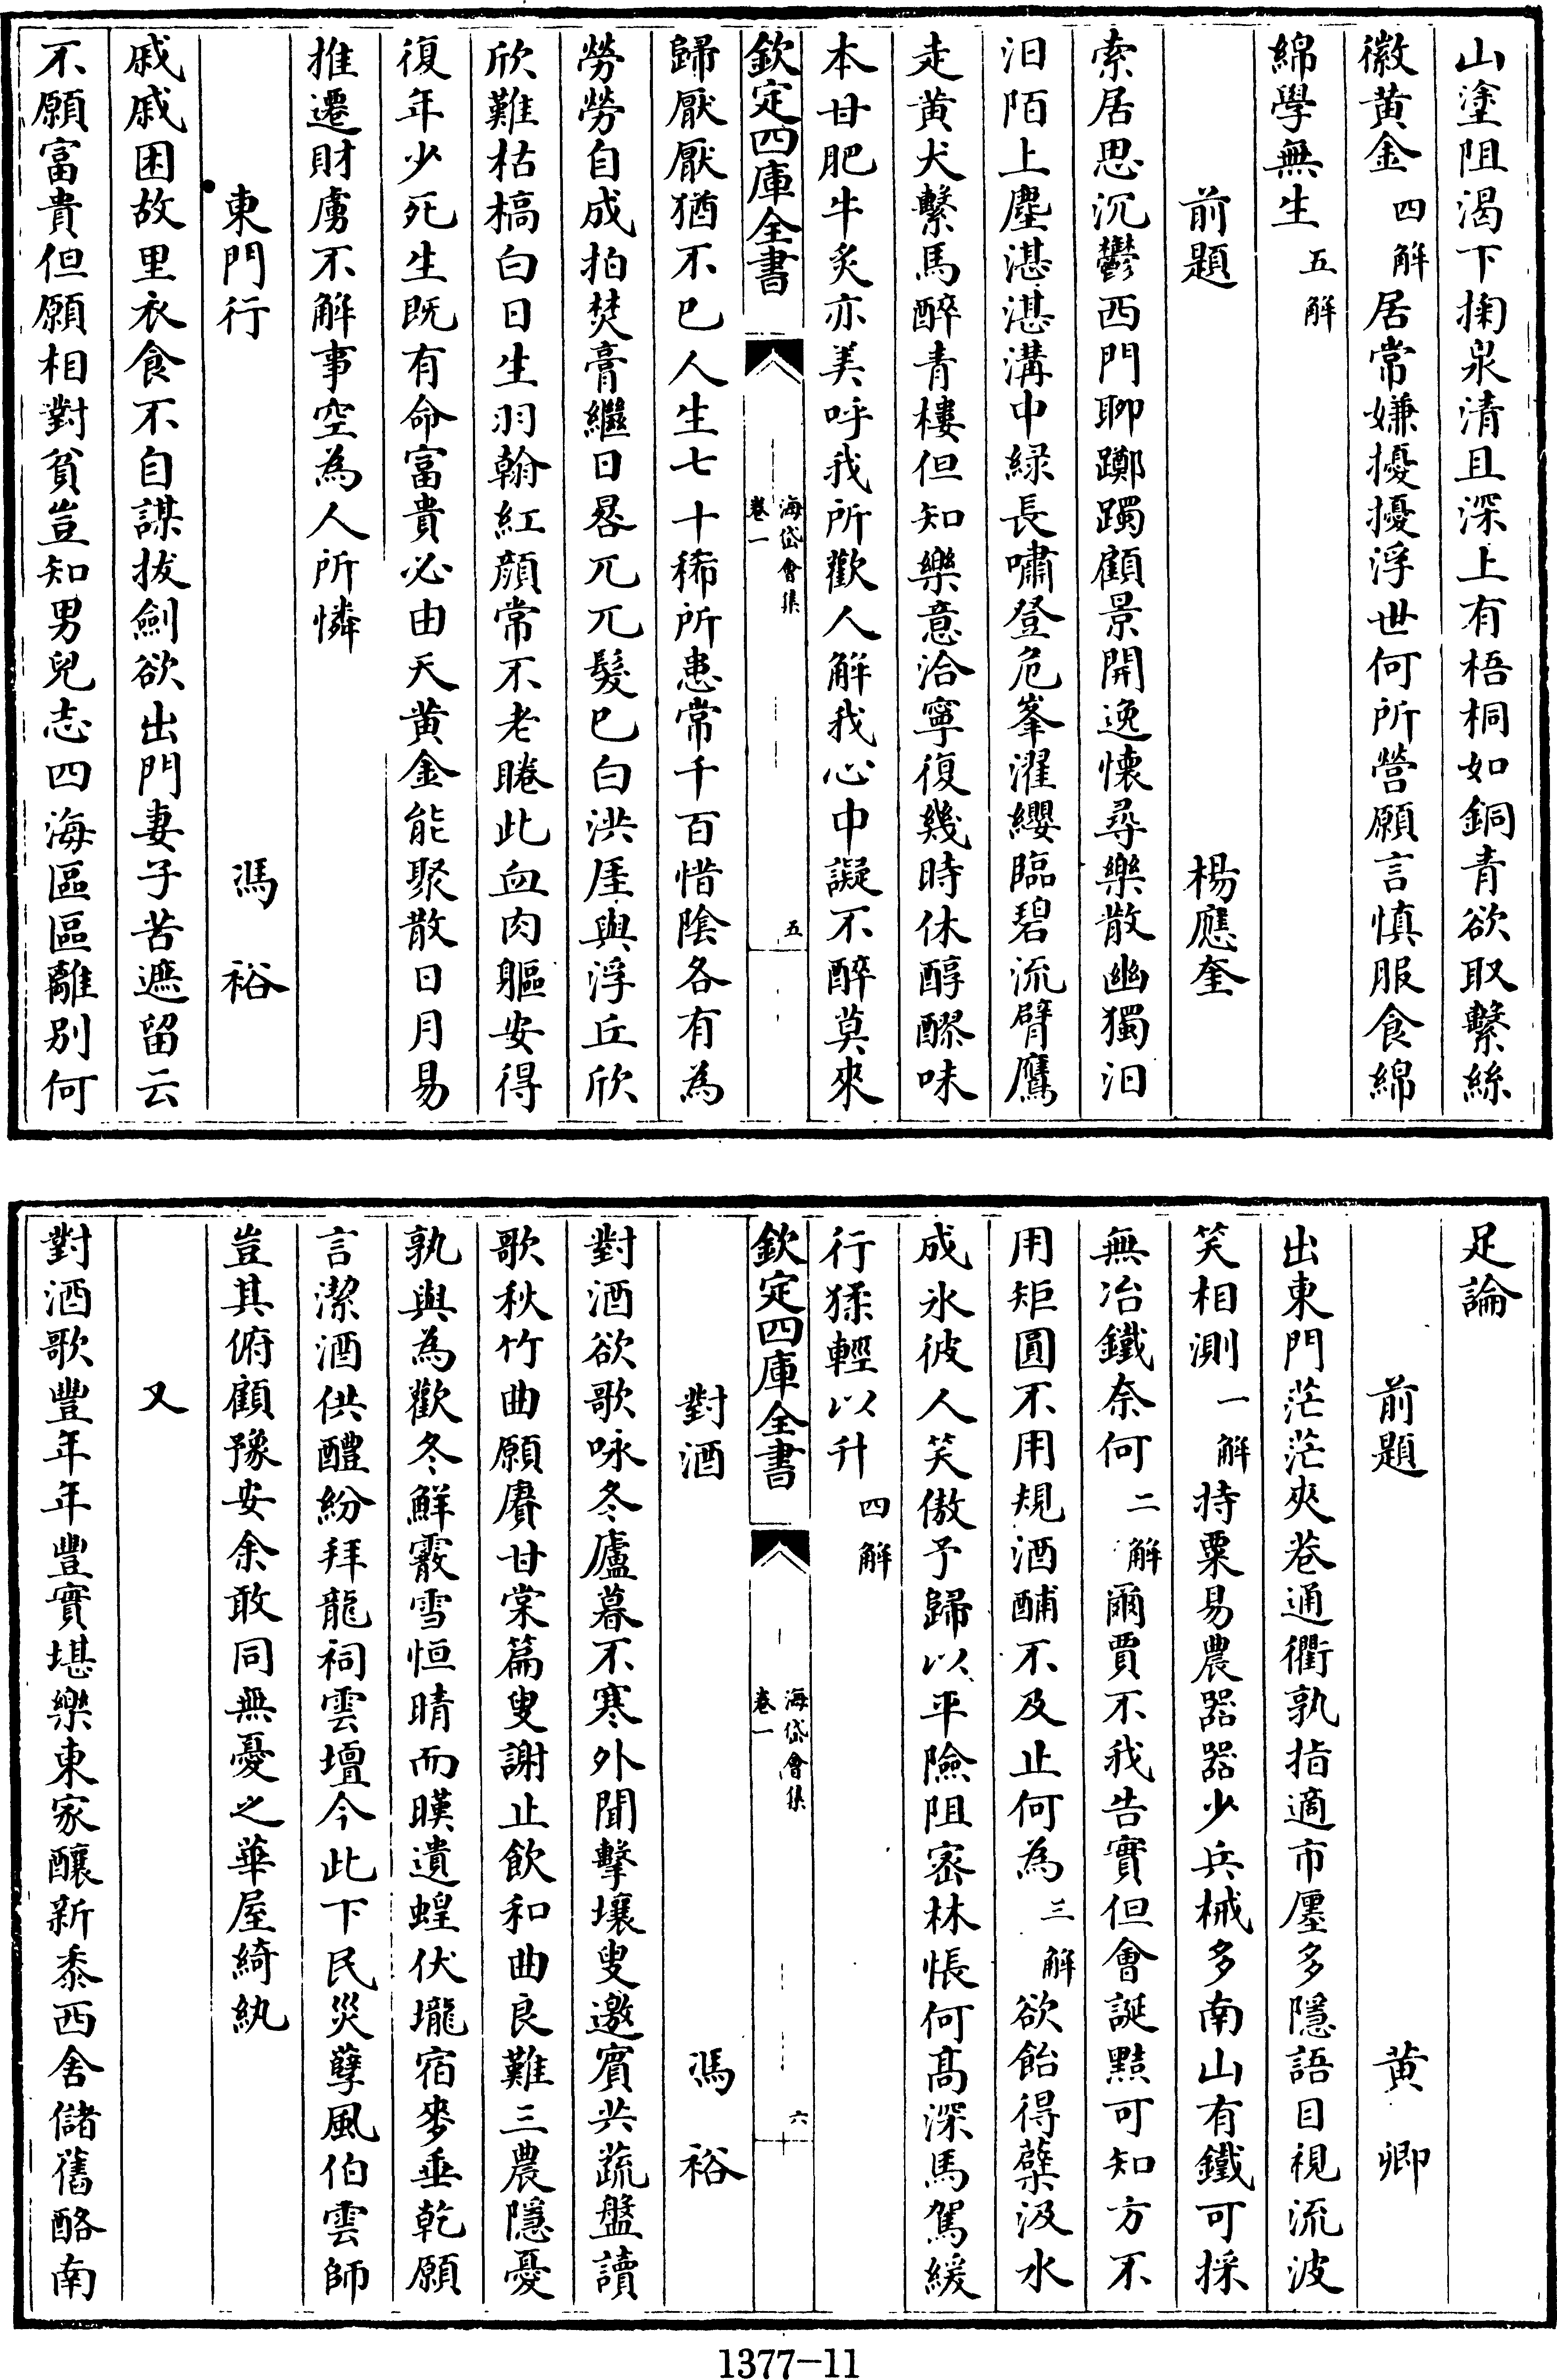 山塗阻渴下掬泉清且深上有梧桐如銅青欲取繫絲
徽黄金四解居常嫌擾擾浮世何所營願言慎服食綿
綿學無生五解
前題 楊應奎
索居思沉鬱西門聊躑躅顧景開逸懷尋樂散幽獨汨
汨陌上塵湛湛溝中緑長嘯登危峯濯纓臨碧流臂鷹
走黄犬繫馬醉青樓但知樂意洽寧復幾時休醇醪味
本甘肥牛炙亦美呼我所歡人解我心中疑不醉莫來
欽定四庫全書 海岱會集 卷一 五
歸厭厭猶不已人生七十稀所患常千百惜陰各有為
勞勞自成拍焚膏繼日晷兀兀髮已白洪厓與浮丘欣
欣難枯槁白日生羽翰紅顔常不老睠此血肉軀安得
復年少死生既有命富貴必由天黄金能聚散日月易
推遷財虜不解事空為人所憐
東門行 馮裕
戚戚困故里衣食不自謀拔劍欲出門妻子苦遮留云
不願富貴但願相對貧豈知男兒志四海區區離别何
足論
前題 黄卿
出東門茫茫夾巷通衢孰指適市廛多隱語目視流波
笑相測一解持粟易農器器少兵械多南山有鐵可採
無冶鐵奈何二解爾賈不我告實但會誕黠可知方不
用矩圓不用規酒酺不及止何為三解欲飴得蘖汲水
成氷彼人笑傲予歸以平險阻宻林悵何髙深馬駕緩
行猱輕以升四解
欽定四庫全書 海岱會集 卷一 六
對酒 馮裕
對酒欲歌咏冬廬暮不寒外聞擊壤叟邀賓共蔬盤讀
歌秋竹曲願賡甘棠篇叟謝止飲和曲良難三農隱憂
孰與為歡冬鮮霰雪恒晴而暵遺蝗伏壠宿麥垂乾願
言潔酒供醴紛拜龍祠雲壇今此下民災孽風伯雲師
豈其俯顧豫安余敢同無憂之華屋綺紈
又
對酒歌豐年年豐實堪樂東家釀新黍西舍儲舊酪南
1377-11